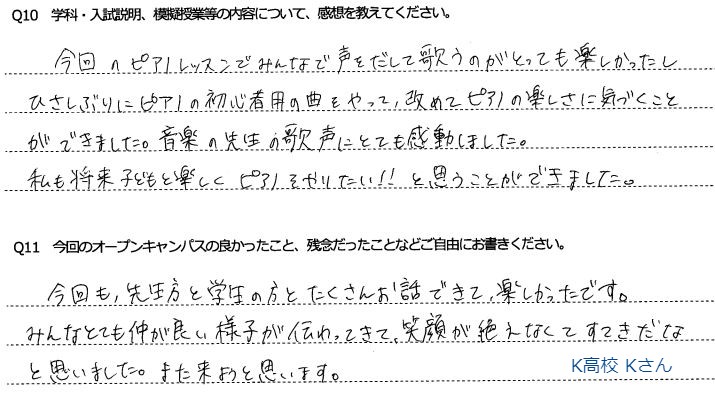 Q10 学科・入試説明、模擬授業等の内容について、感想を教えてください。
今回のピアノレッスンでみんなで声をだして歌うのがとっても楽しかったし
ひさしぶりにピアノの初心者用の曲をやって、改めてピアノの楽しさに気づくこと
ができました。音楽の先生の歌声にとても感動しました。
私も将来子どもと楽しくピアノをやりたい!!と思うことができました。
Q11 今回のオープンキャンパスの良かったこと、残念だったことなどご自由にお書きください。
今回も、先生方と学生の方とたくさんお話できて、楽しかったです。
みんなとても仲が良い様子が伝わってきて、笑顔が絶えなくてすてきだな
と思いました。また来ようと思います。
K高校 Kさん